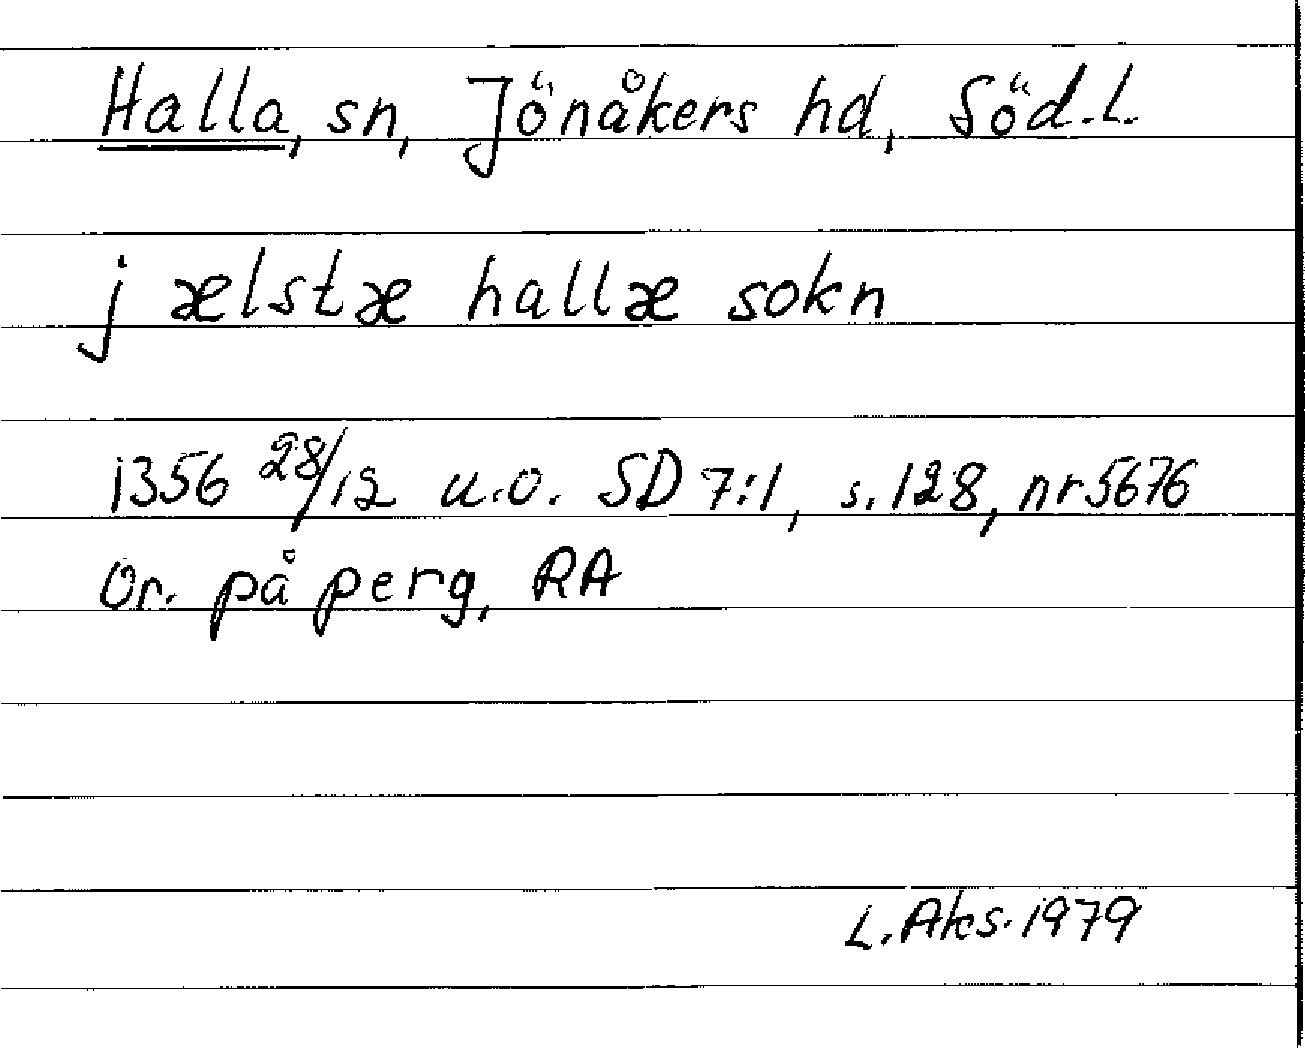 Halla, sn, Jönåkers hd, Söd.L.
j ælstæ hallæ sokn
1356 28/12 u.o. SD 7:1, s. 128, nr 5676
Or. på perg, RA
L. Aks. 1979